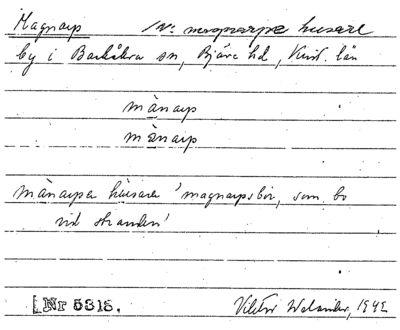 Magnarp
by i Barkåkra sn, Bjäre hd, Krist. län
månarp
månarp
månarpa husara 'magnarpsbor, som bo
vid stranden'
Nr 5315.
Viktor Welander, 1942